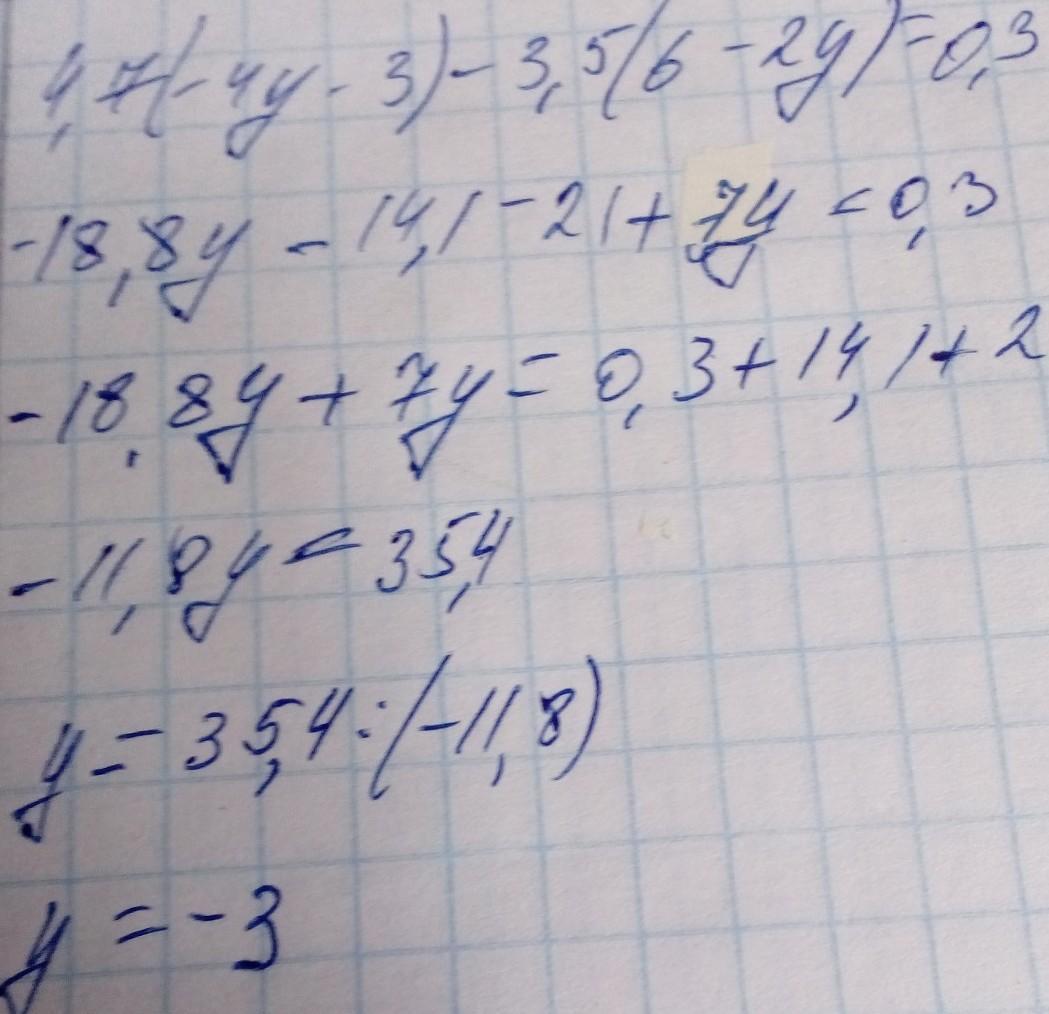 4,7(-4y-3)-3,5(6-2y)=0,3
-18,8y-14,1-21+7y=0,3
-18,8y+7y=0,3+14,1+2
-11,8y=35,4
y=35,4:(-11,8)
y=-3